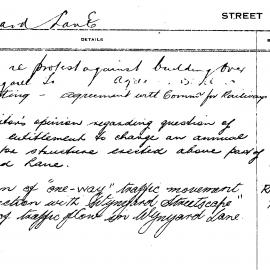 ard Lane
STREET
DETAILS
re protest against building over
ting - agreement with Commr for Railways
itor's opinion regarding question of
entitlement to change an annual
structure erected above part of
d Lane.
n of "one-way" traffic movement
ction with Wynyard Streetscape"
of traffic flow in Wynyard Lane
R